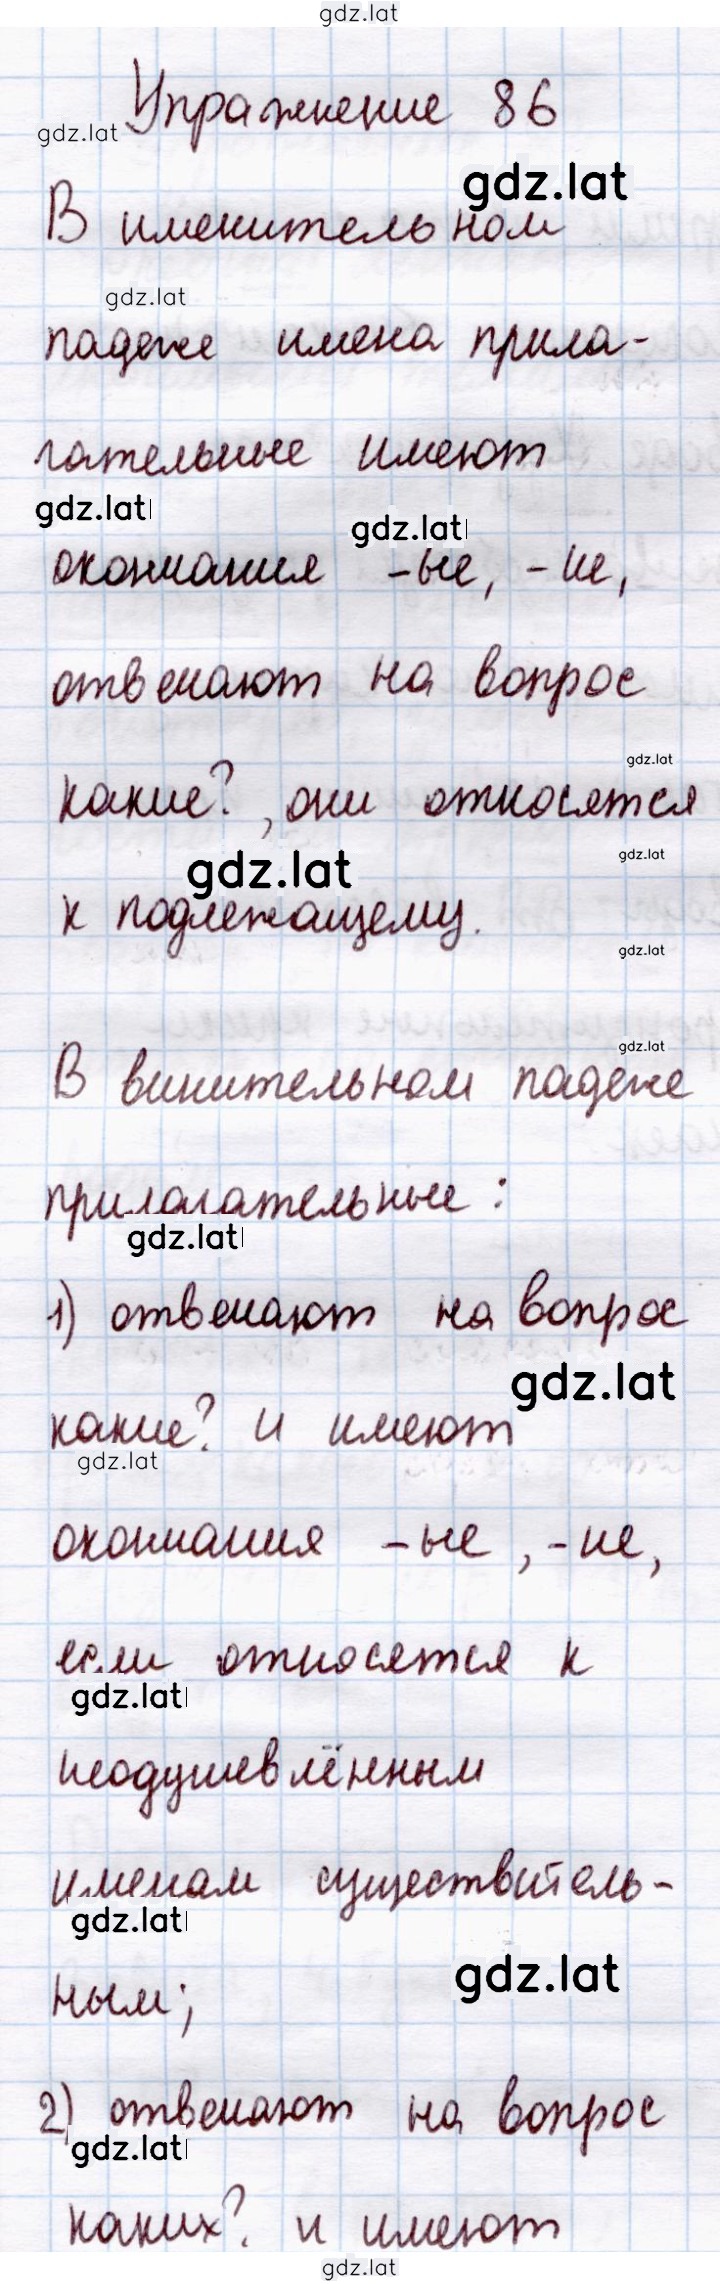 gdz.lat
Упражнение 86
gdz.lat
gdz.lat
В именительном
gdz.lat
падеже имена прила-
гательные имеют
gdz.lat
gdz.lat
окончания -ые, -ие,
отвечают на вопрос
gdz.lat
какие?, они относятся
gdz.lat
gdz.lat
к подлежащему.
gdz.lat
gdz.lat
В винительном падеже
прилагательные:
gdz.lat
1) отвечают на вопрос
gdz.lat
какие? и имеют
gdz.lat
окончания -ые, -ие,
если относятся к
gdz.lat
неодушевлённым
именам существитель-
gdz.lat
gdz.lat
ным;
2) отвечают на вопрос
gdz.lat
каких? и имеют
gdz.lat